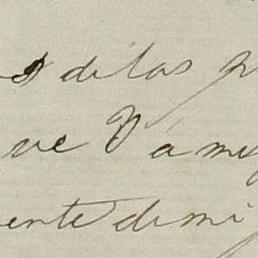 s de las p
ue V á me
ente de mi